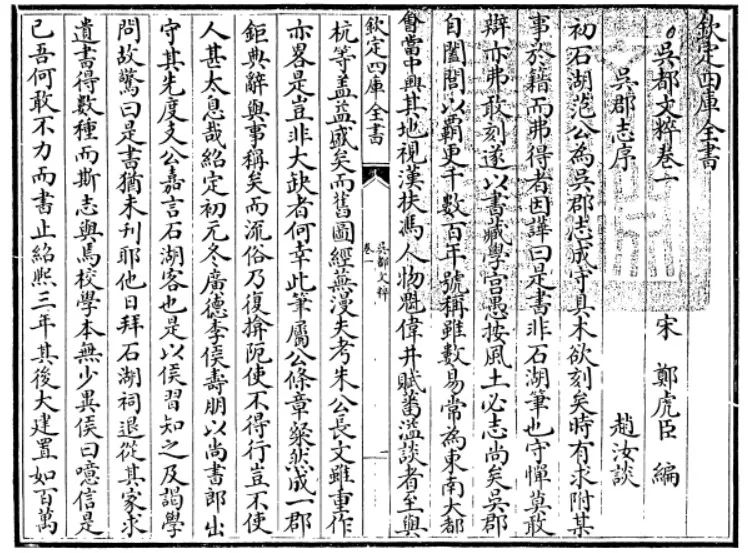 欽定四庫全書
吳都文粹卷一　宋　鄭虎臣　編
吳郡志序　趙汝談
初石湖范公為吳郡志成守具木欲刻矣時有求附某
事於籍而弗得者因譁曰是書非石湖筆也守憚莫敢
辨亦弗敢刻遂以書藏學宫愚按風土必志尚矣吳郡
自闔閭以霸更千數百年號稱雖數易常為東南大都
會當中興其地視漢扶馮人物魁偉井賦蕃溢談者至與
欽定四庫全書
吳都文粹
卷一
一
杭等蓋益盛矣而舊圖經蕪漫失考朱公長文雖重作
亦畧是豈非大缺者何幸此筆屬公條章粲然成一郡
鉅典辭與事稱矣而流俗乃復揜阨使不得行豈不使
人甚太息哉紹定初元冬廣德李侯壽朋以尚書郎出
守其先度支公嘉言石湖客也是以侯習知之及謁學
問故驚曰是書猶未刊耶他日拜石湖祠退從其家求
遺書得數種而斯志與焉校學本無少異侯曰噫信是
已吾何敢不力而書止紹熙三年其後大建置如百萬